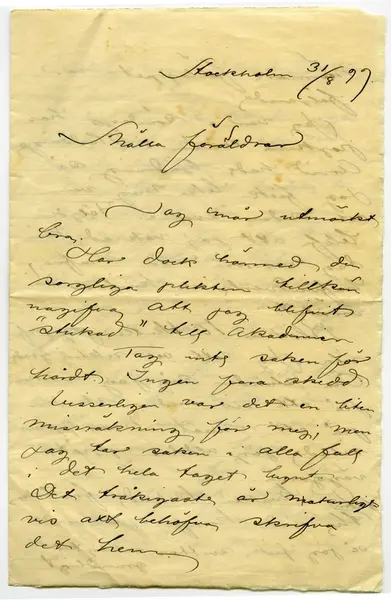 Stockholm 31/8 99
Snälla föräldrar
Jag mår utmärkt
bra.
Har dock härmed den
sorgliga plikten tillkän
nagifva att jag blifvit
"stukad" till Akademien
Tag inte saken för
hårdt. Ingen fara skedd
Visserligen var det en liten
missräkning för mej, men
jag tar saken i alla fall
i det hela taget lugnt.
Det tråkigaste är naturligt-
vis att behöfva skrifva
det hem